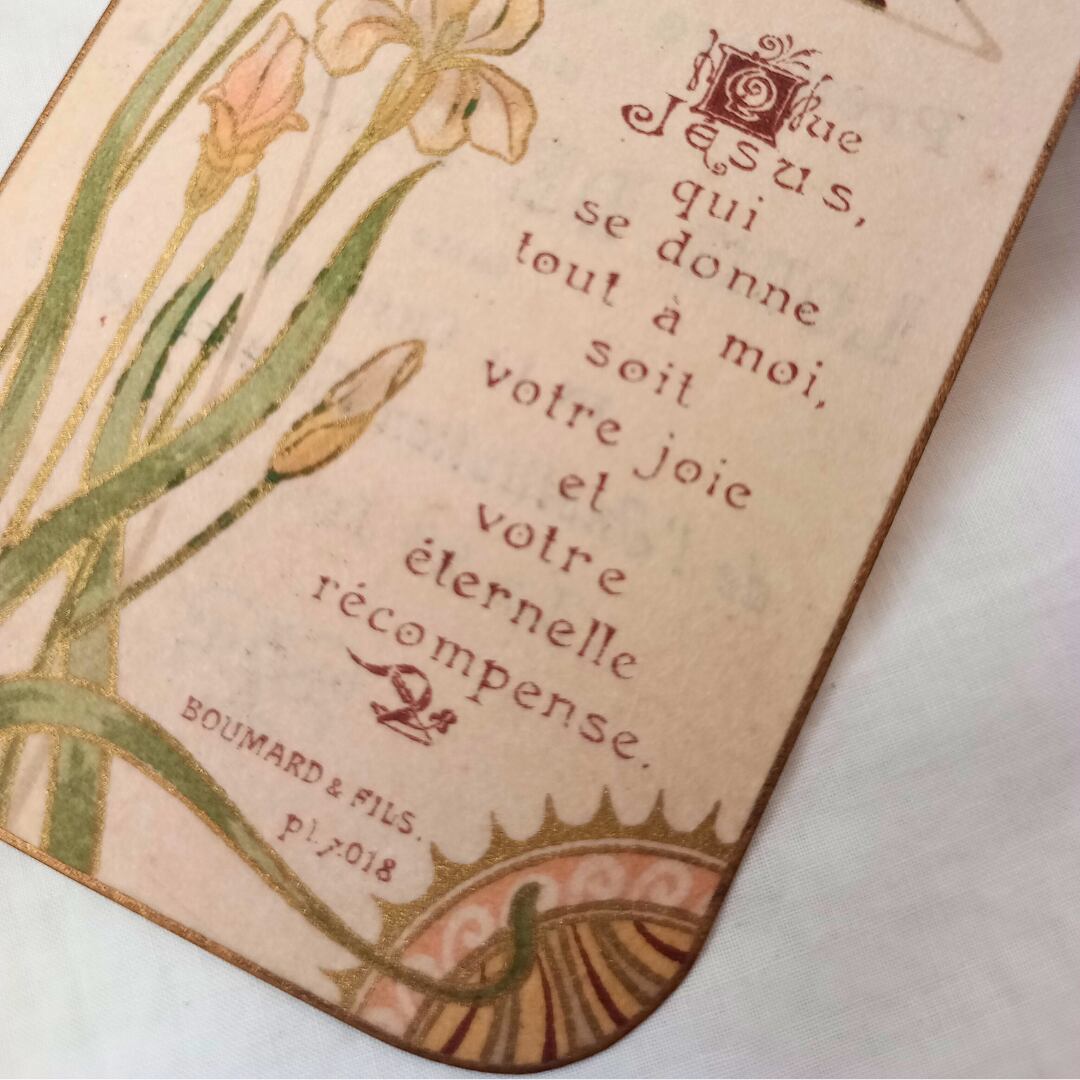 Que
Jesus,
qui
se donne
tout à moi,
soit
votre joie
et
votre
éternelle
récompense.
BOUMARD & FILS.
pl.7018